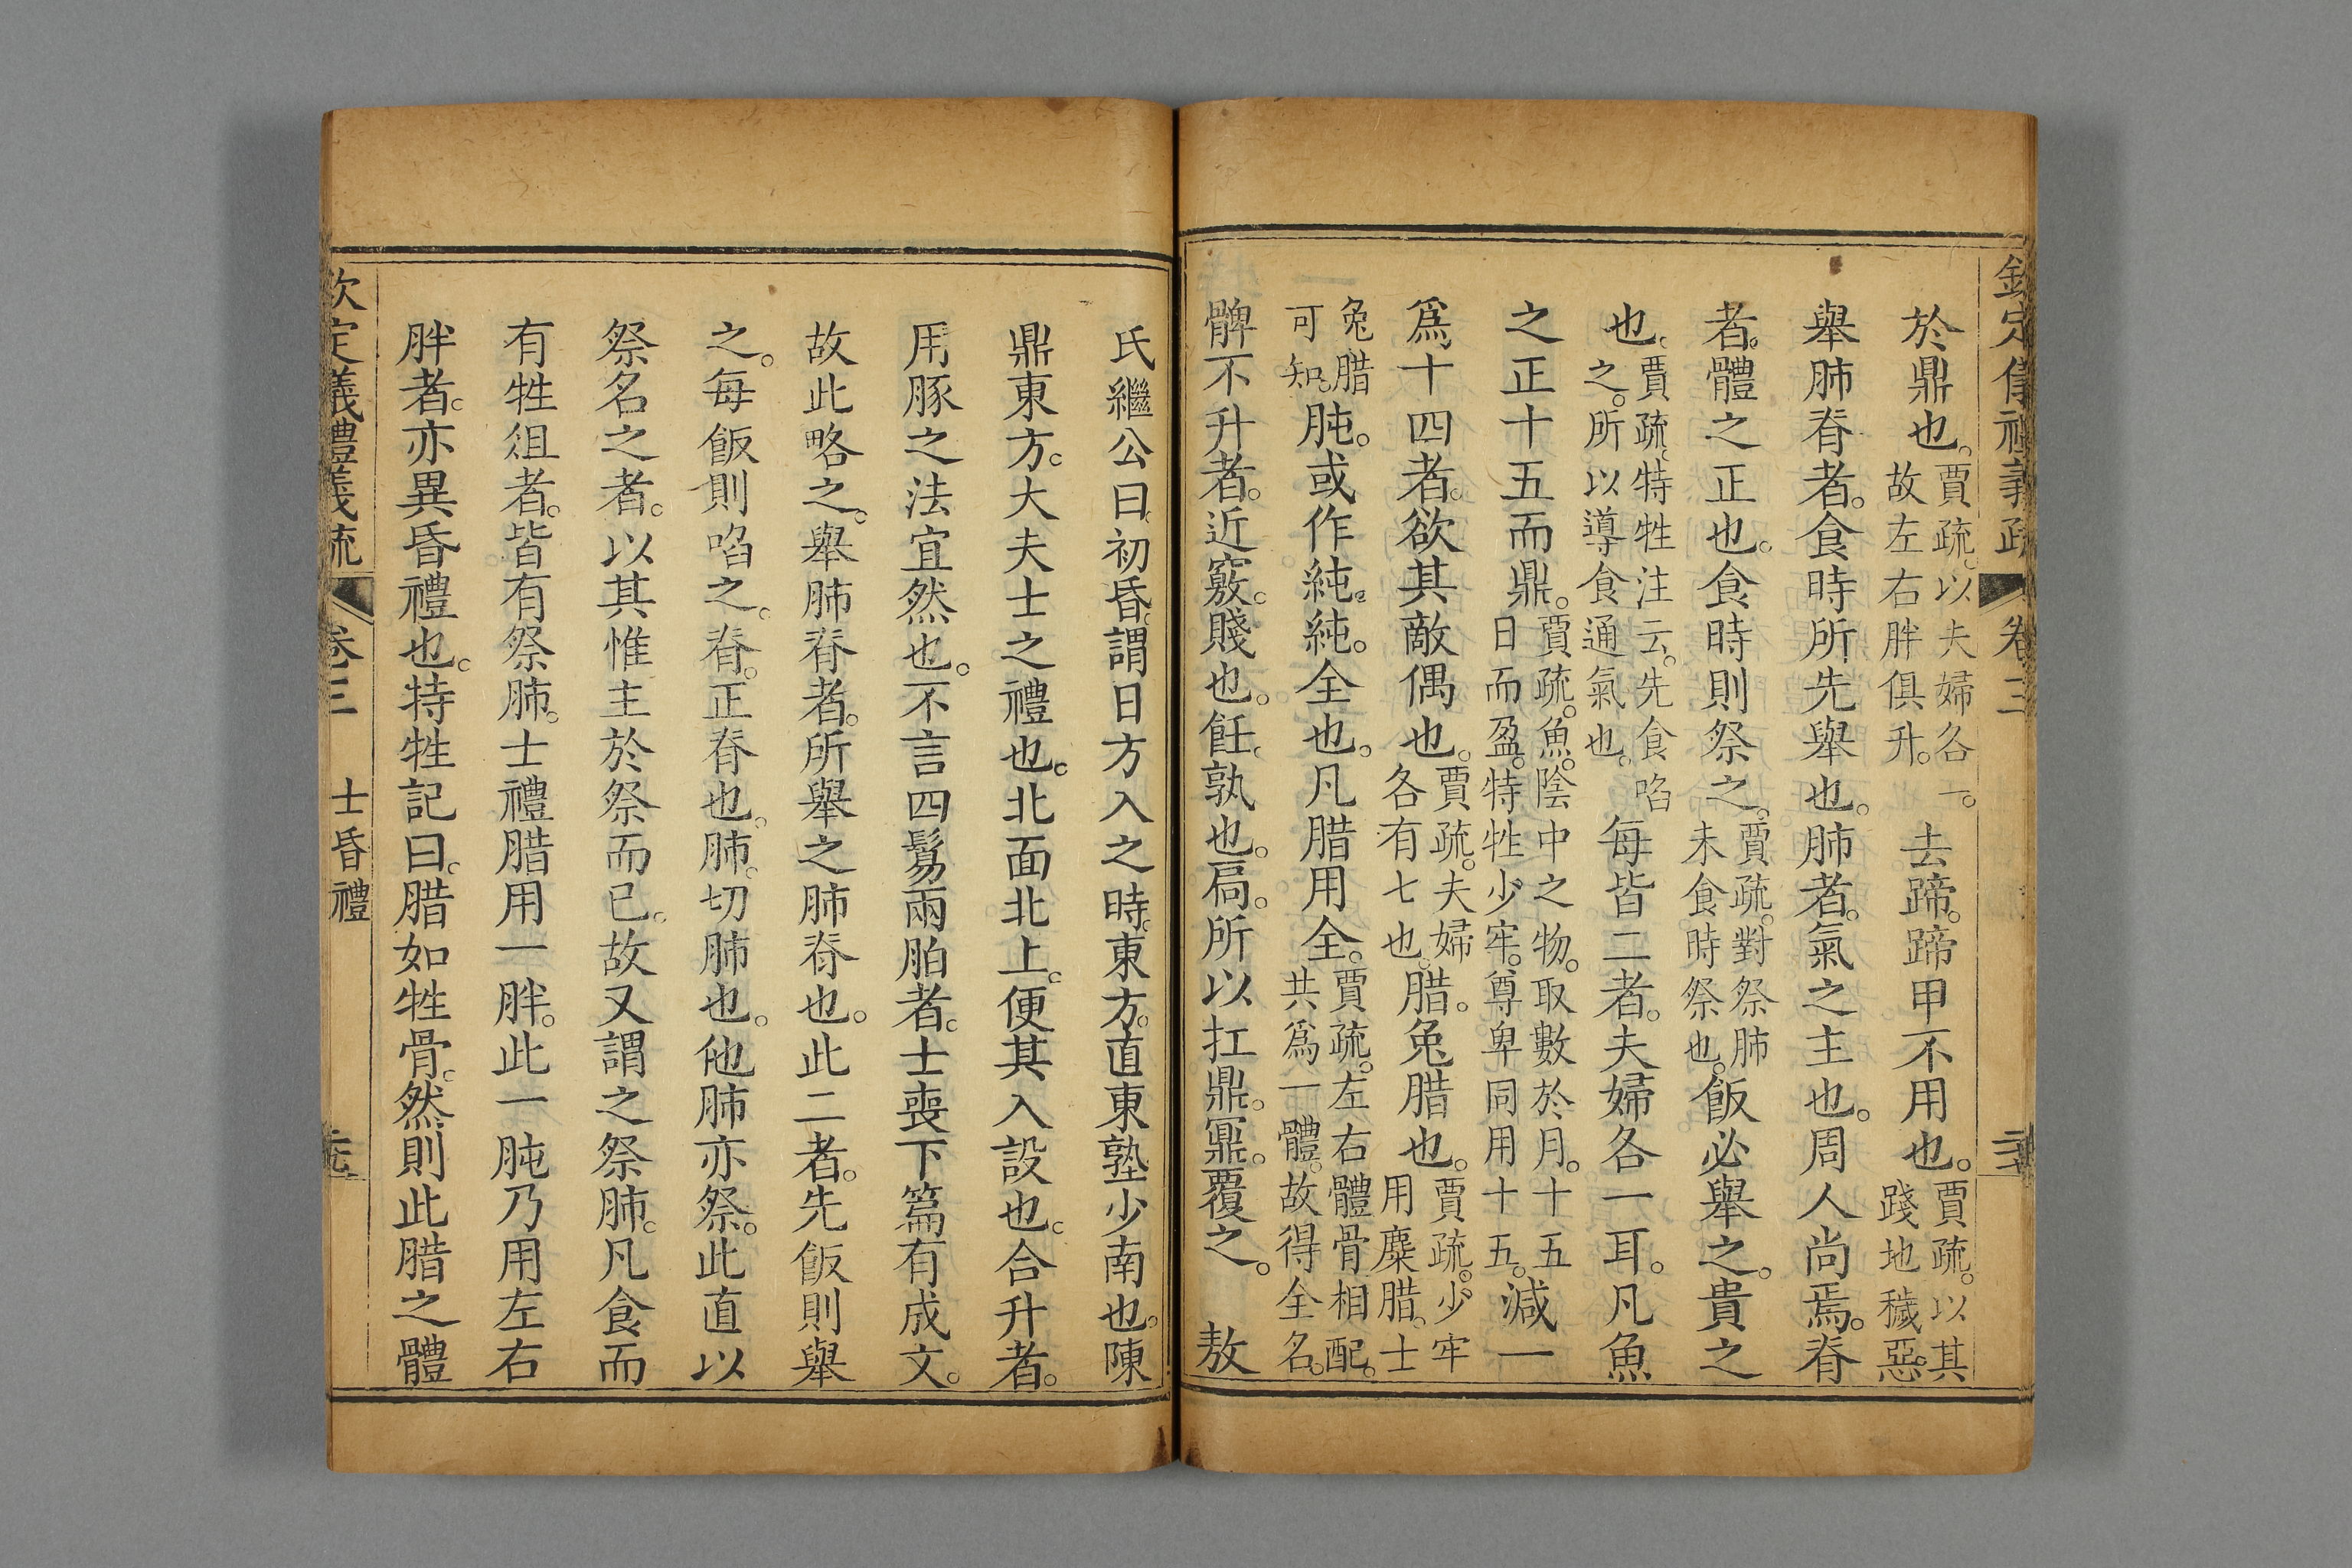 欽定儀禮義疏 卷三
於鼎也。賈疏。以夫婦各一。故左右胖俱升。去蹄。蹄甲不用也。賈疏。以其踐地穢惡。
舉肺脊者。食時所先舉也。肺者。氣之主也。周人尚焉。脊
者。體之正也。食時則祭之。賈疏。對祭肺未食時祭也。飯必舉之。貴之
也。賈疏。特牲注云。先食啗之。所以導食通氣也。每皆二者。夫婦各一耳。凡魚
之正十五而鼎。賈疏。魚。陰中之物。取數於月。十五日而盈。特牲少牢。尊卑同用十五。減一
爲十四者。欲其敵偶也。賈疏。夫婦各有七也。腊。兔腊也。賈疏。少牢用麋腊。士
兔腊可知。肫。或作純。純。全也。凡腊用全。賈疏。左右體骨相配。共爲一體。故得全名。
髀不升者。近竅。賤也。飪。孰也。扃。所以扛鼎。鼏。覆之。 敖
氏繼公曰。初昏。謂日方入之時。東方。直東塾少南也。陳
鼎東方。大夫士之禮也。北面北上。便其入設也。合升者。
用豚之法宜然也。不言四鬄兩胉者。士喪下篇有成文。
故此略之。舉肺脊者。所舉之肺脊也。此二者。先飯則舉
之。每飯則啗之。脊。正脊也。肺。切肺也。他肺亦祭。此直以
祭名之者。以其惟主於祭而已。故又謂之祭肺。凡食而
有牲俎者。皆有祭肺。士禮腊用一胖。此一肫乃用左右
胖者。亦異昏禮也。特牲記曰。腊如牲骨。然則此腊之體
欽定儀禮義疏 卷三 士昏禮